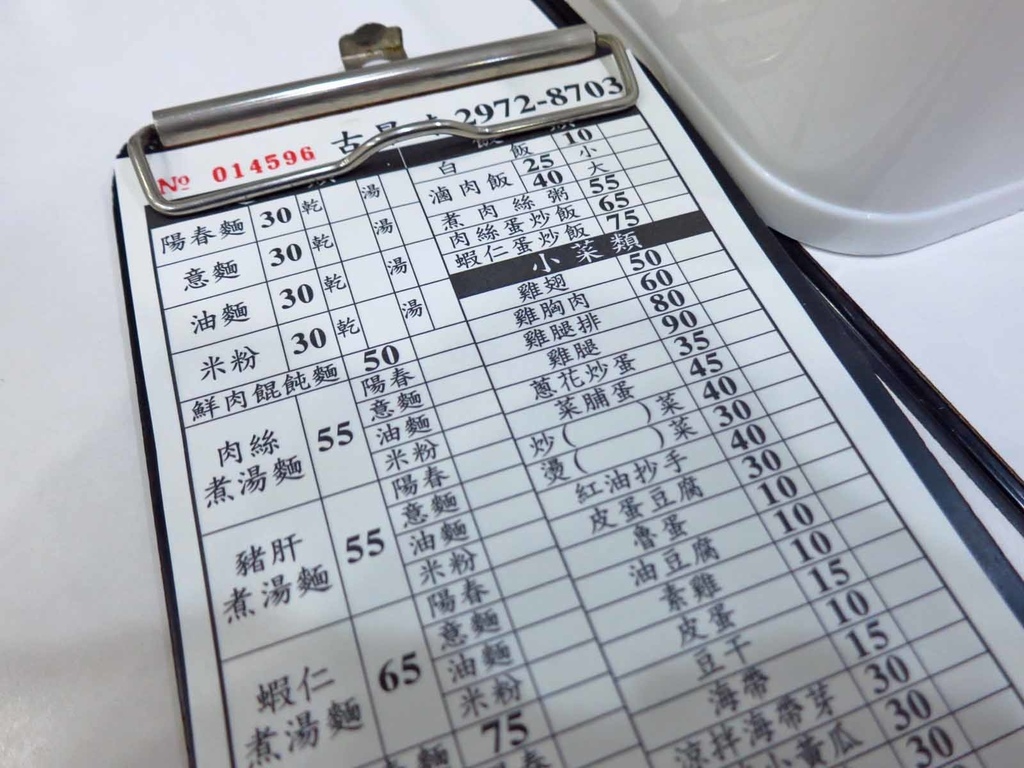 № 014596
2972-8703
陽春麵 30 乾 湯
意麵 30 乾 湯
油麵 30 乾 湯
米粉 30 乾 湯
鮮肉餛飩麵 50
肉絲煮湯麵 55 陽春
意麵
油麵
米粉
豬肝煮湯麵 55 陽春
意麵
油麵
米粉
蝦仁煮湯麵 65 陽春
意麵
油麵
米粉
麵 75
白飯 10
滷肉飯 25 小
40 大
煮肉絲粥 55
肉絲蛋炒飯 65
蝦仁蛋炒飯 75
小菜類
雞翅 50
雞胸肉 60
雞腿排 80
雞腿 90
蔥花炒蛋 35
菜脯蛋 45
炒( )菜 40
燙( )菜 30
紅油抄手 40
皮蛋豆腐 30
魯蛋 10
油豆腐 10
素雞 10
皮蛋 15
豆干 10
海帶 15
涼拌海帶芽 30
小黃瓜 30
30